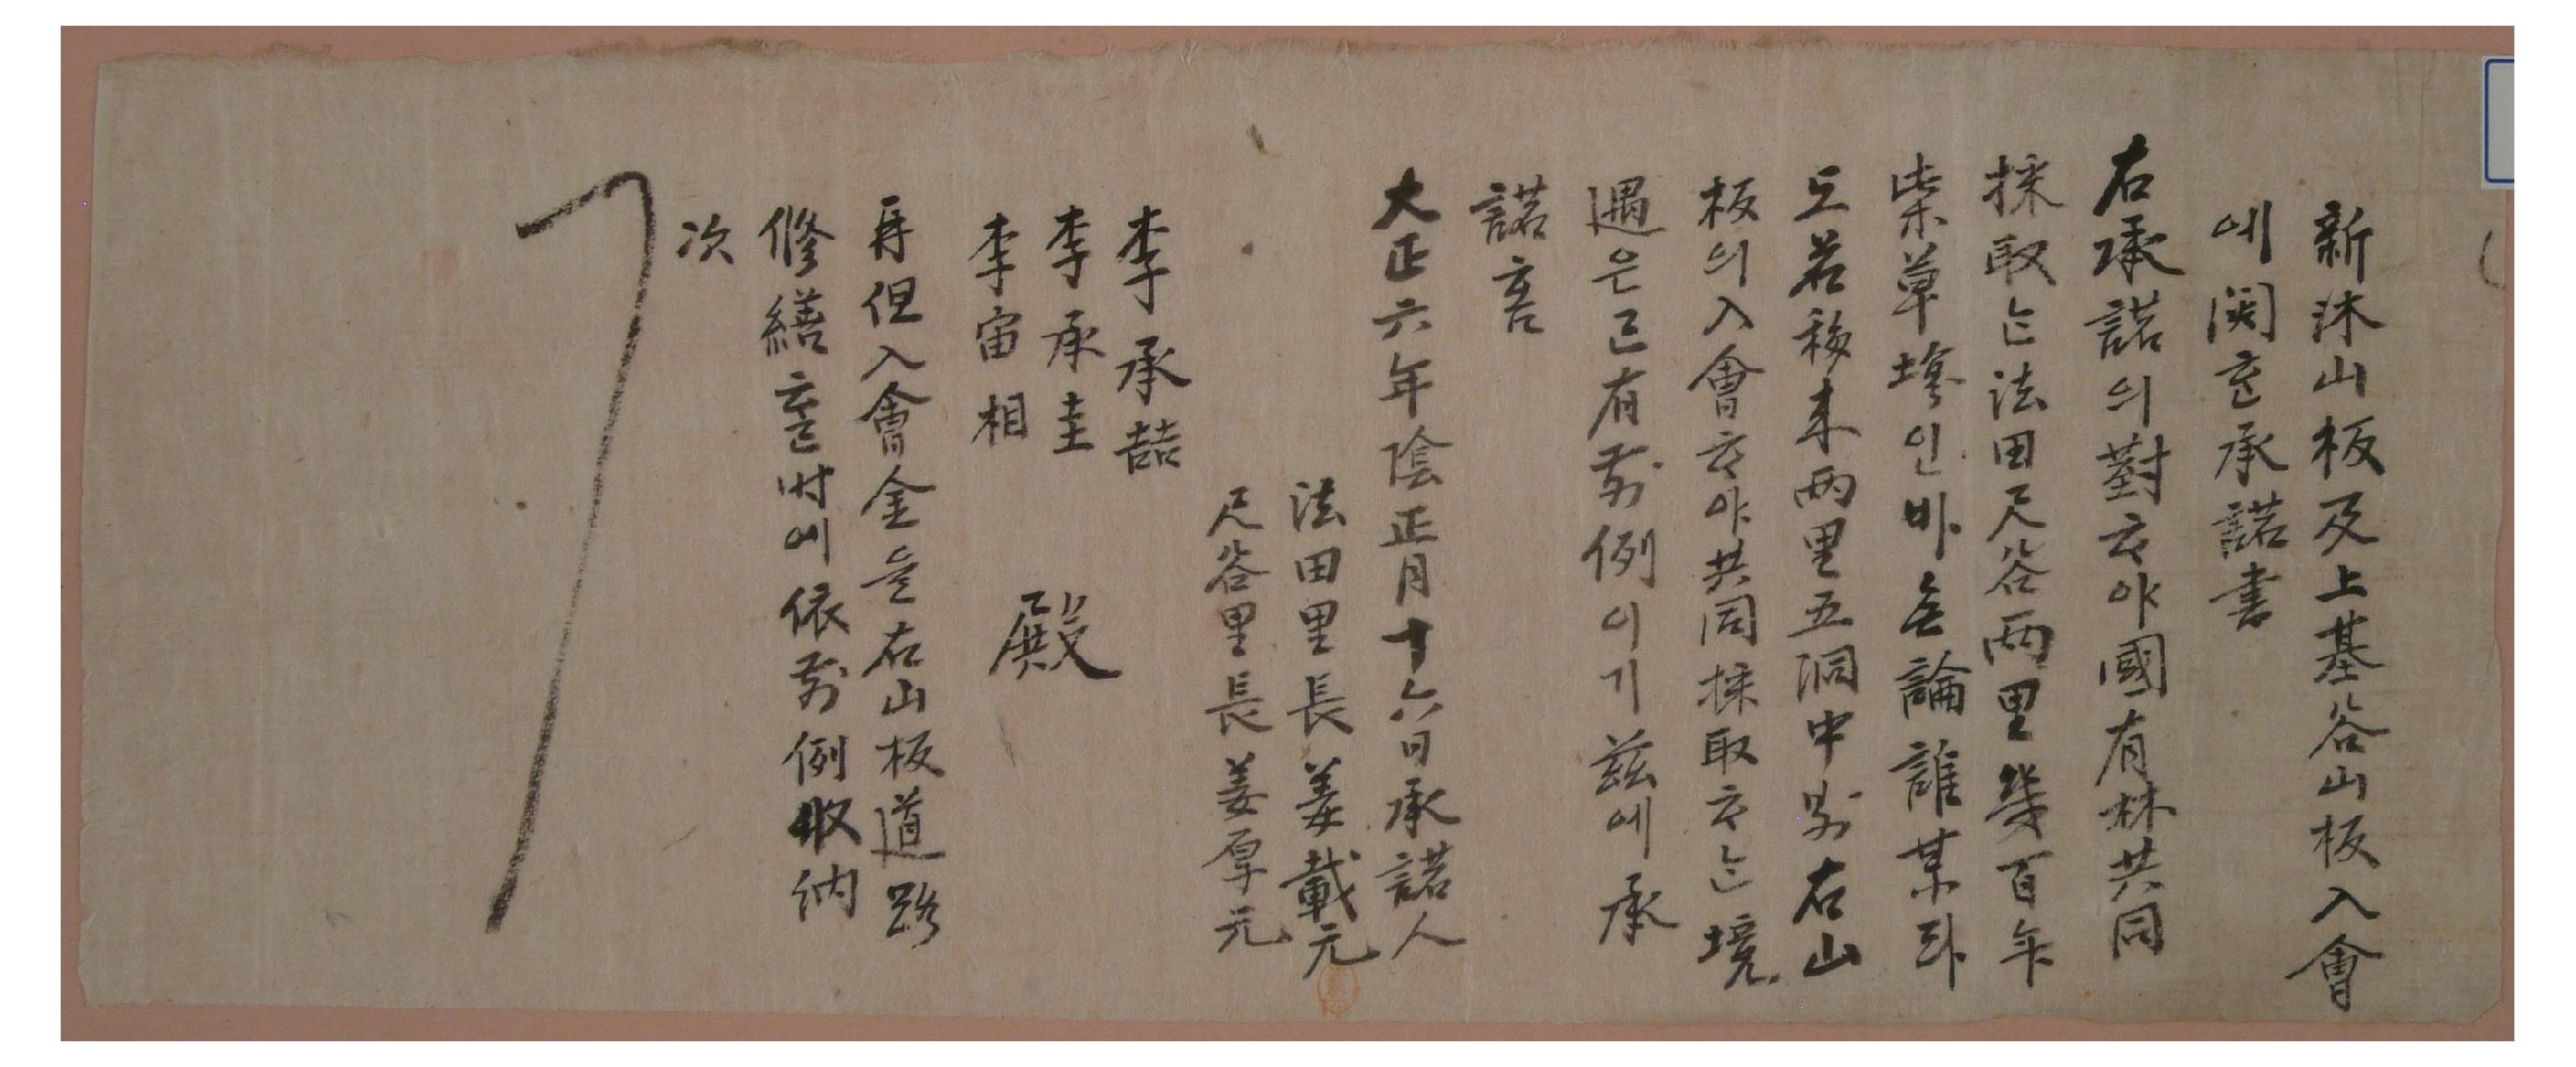 新沐山板及上基谷山板入會
에 関한 承諾書
右承諾의 對하야 國有林共同
採取는 法田尺谷兩里幾百年
柴草場인바 無論誰某하
고 若移来兩里五洞中 則右山
板의 入會하야 共同採取하는 境
遇은 已有前例이기 玆에 承
諾홈
大正六年陰正月十六日 承諾人
法田里長 姜載元
尺谷里長 姜厚元
李承喆
李承圭
李宙相 殿
再但入會金은 右山板道路
修繕할 時에 依前例收納
次